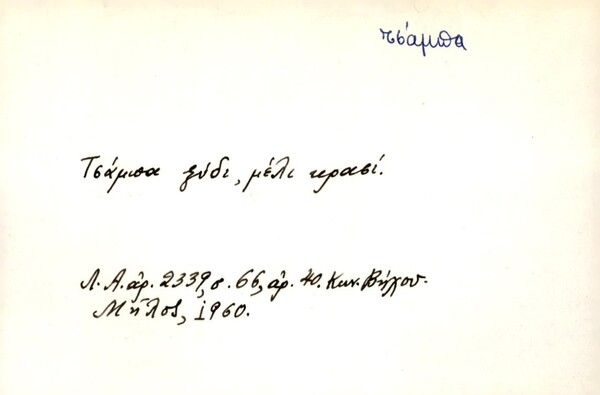 τσάμπα
Τσάμπα ξύδι, μέλι κρασί.
Λ.Α. ἀρ. 2339, σ. 66, ἀρ. 40. Κων. Βήχου.
Μῆλος, 1960.